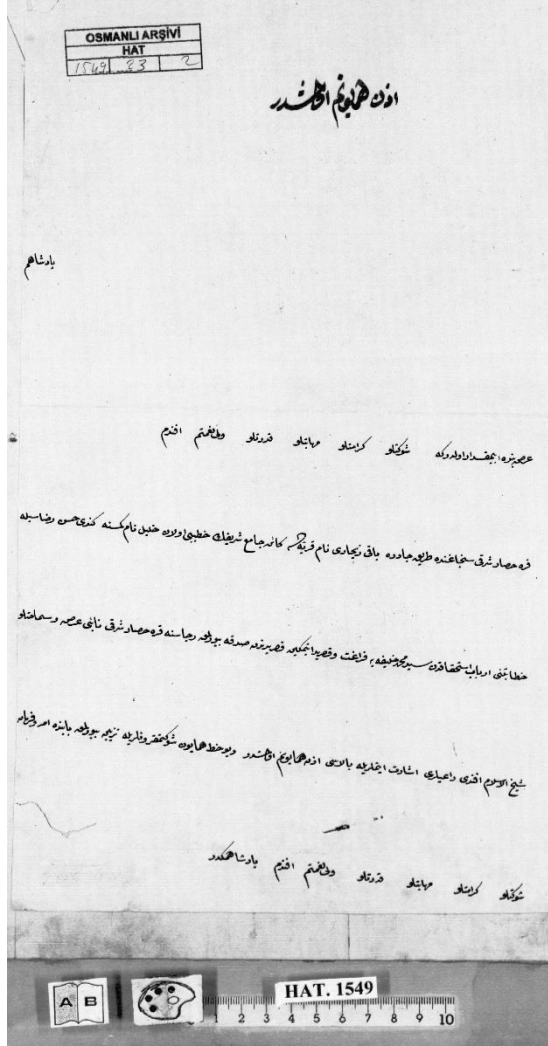 OSMANLI ARŞİVİ
HAT
1549 23 2
اذن همایونم اولمشدر
پادشاهم
عرض بنده بیمقداریدر اولدر که شوکتلو کرامتلو مهابتلو قدرتلو ولی نعمتم افندم
قره حصار شرقی سنجاغنده طریق جاده ده نام قریه ده کائن جامع شریفك خطیبی اولان خلیل نام کمسنه کندی حسن رضاسیله
خطابتنی ارباب استحقاقدن سید محمد خلیفه یه فراغت وقصر ید ایتمکین قصر یدندن صدقه بیورلمق رجاسنه قره حصار شرقی نائبی عرض وسماحتلو
شیخ الاسلام افندی داعیلری اشارت ایتملریله بالاسی اذن همایونم اولمشدر دیو خط همایون شوکتمقرونلریله تزیین بیورلمق بابنده امر وفرمان
شوکتلو کرامتلو مهابتلو قدرتلو ولی نعمتم افندم پادشاهمکدر
A B
HAT. 1549
1 2 3 4 5 6 7 8 9 10